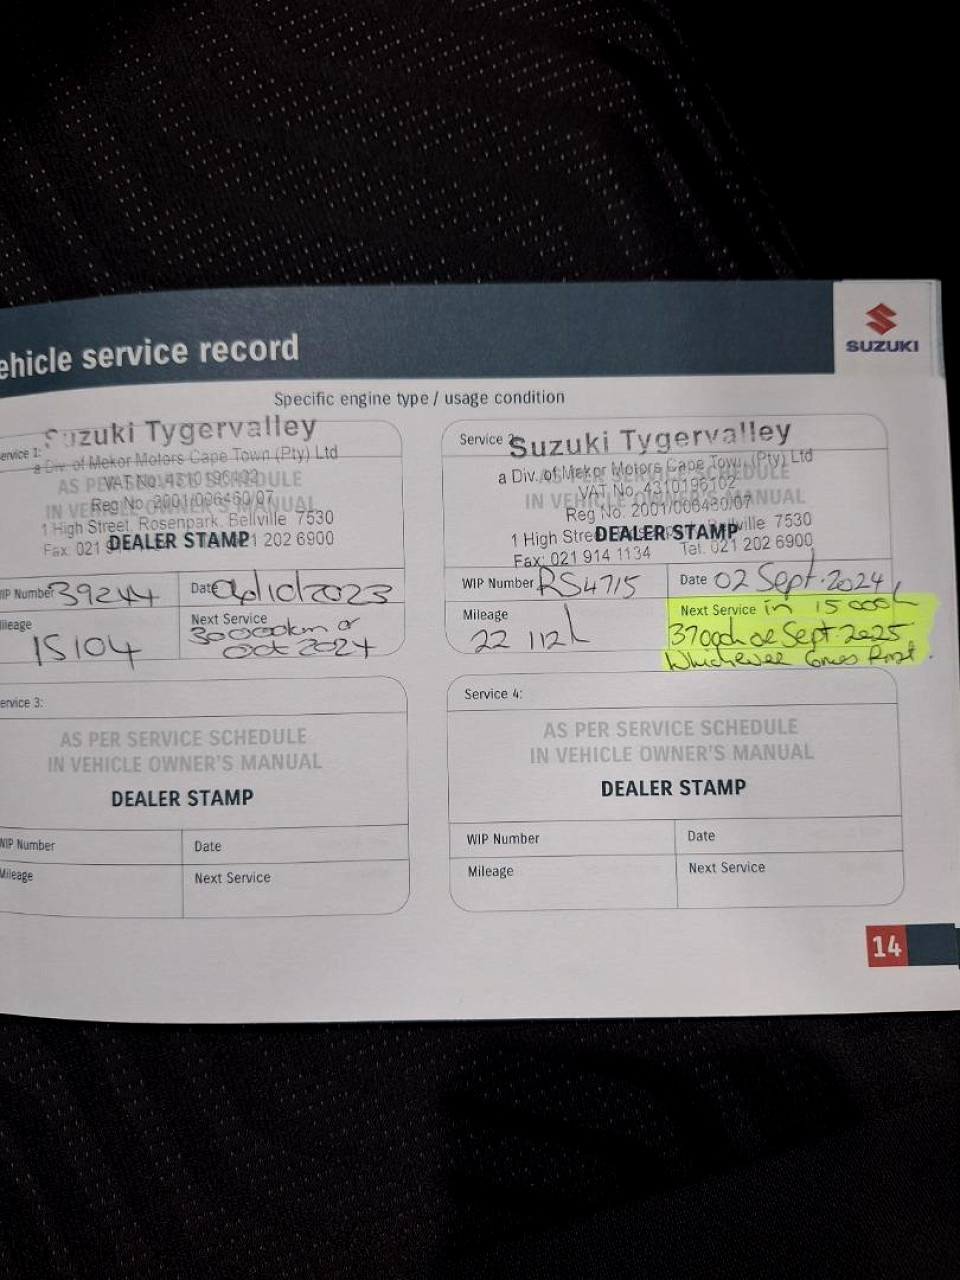 ehicle service record
SUZUKI
Specific engine type / usage condition
ervice 1:
Suzuki Tygervalley
a Div. of Mekor Motors Cape Town (Pty) Ltd
VAT No. 4310196102
Reg No. 2001/006460/07
1 High Street, Rosenpark, Bellville 7530
DEALER STAMP
Fax: 021 9 1 202 6900
IP Number 39244
Date 04/10/2023
ileage
15104
Next Service
30000km or
Oct 2024
Service 2
Suzuki Tygervalley
a Div. of Mekor Motors Cape Town (Pty) Ltd
AS PER SERVICE SCHEDULE
VAT No. 4310196102
IN VEHICLE OWNER'S MANUAL
Reg No. 2001/006460/07
1 High Stree ville 7530
DEALER STAMP
Fax: 021 914 1134 Tel. 021 202 6900
WIP Number RS4715
Date 02 Sept. 2024
Mileage
22 112
Next Service in 15000
or Sept. 2025
Whichever Comes First.
ervice 3:
AS PER SERVICE SCHEDULE
IN VEHICLE OWNER'S MANUAL
DEALER STAMP
WIP Number
Date
Mileage
Next Service
Service 4:
AS PER SERVICE SCHEDULE
IN VEHICLE OWNER'S MANUAL
DEALER STAMP
WIP Number
Date
Mileage
Next Service
14